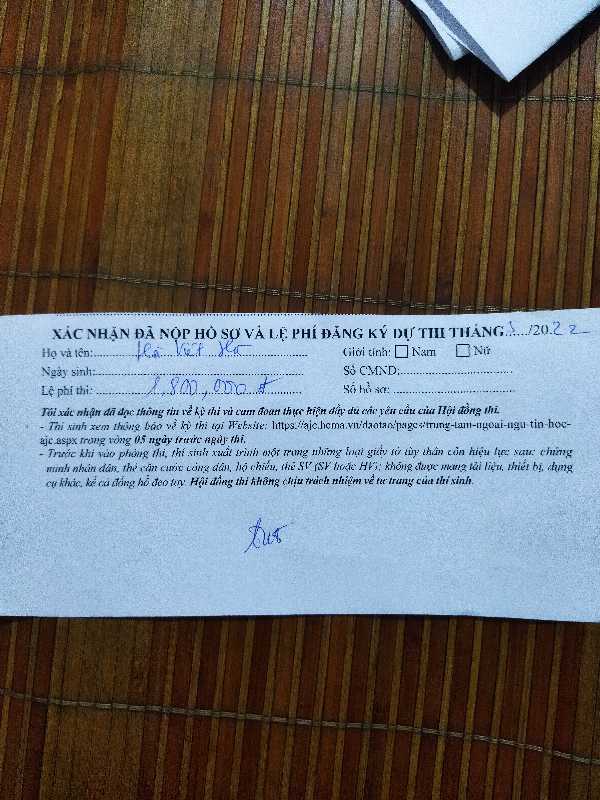 XÁC NHẬN ĐÃ NỘP HỒ SƠ VÀ LỆ PHÍ ĐĂNG KÝ DỰ THI THÁNG 5/2022
Họ và tên: Hà Việt Hà Giới tính: Nam Nữ
Ngày sinh: Số CMND:
Lệ phí thi: 1,800,000 đ Số hồ sơ:
Tôi xác nhận đã đọc thông tin về kỳ thi và cam đoan thực hiện đầy đủ các yêu cầu của Hội đồng thi.
- Thí sinh xem thông báo về kỳ thi tại Website: https://ajc.hcma.vn/daotao/pages/trung-tam-ngoai-ngu-tin-hoc-
ajc.aspx trong vòng 05 ngày trước ngày thi.
- Trước khi vào phòng thi, thí sinh xuất trình một trong những loại giấy tờ tùy thân còn hiệu lực sau: chứng
minh nhân dân, thẻ căn cước công dân, hộ chiếu, thẻ SV (SV hoặc HV); không được mang tài liệu, thiết bị, dụng
cụ khác, kể cả đồng hồ đeo tay. Hội đồng thi không chịu trách nhiệm về tư trang của thí sinh.